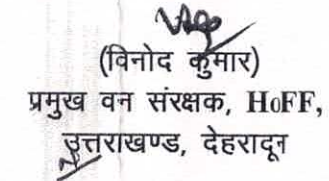 (विनोद कुमार)
प्रमुख वन संरक्षक, HoFF,
उत्तराखण्ड, देहरादून